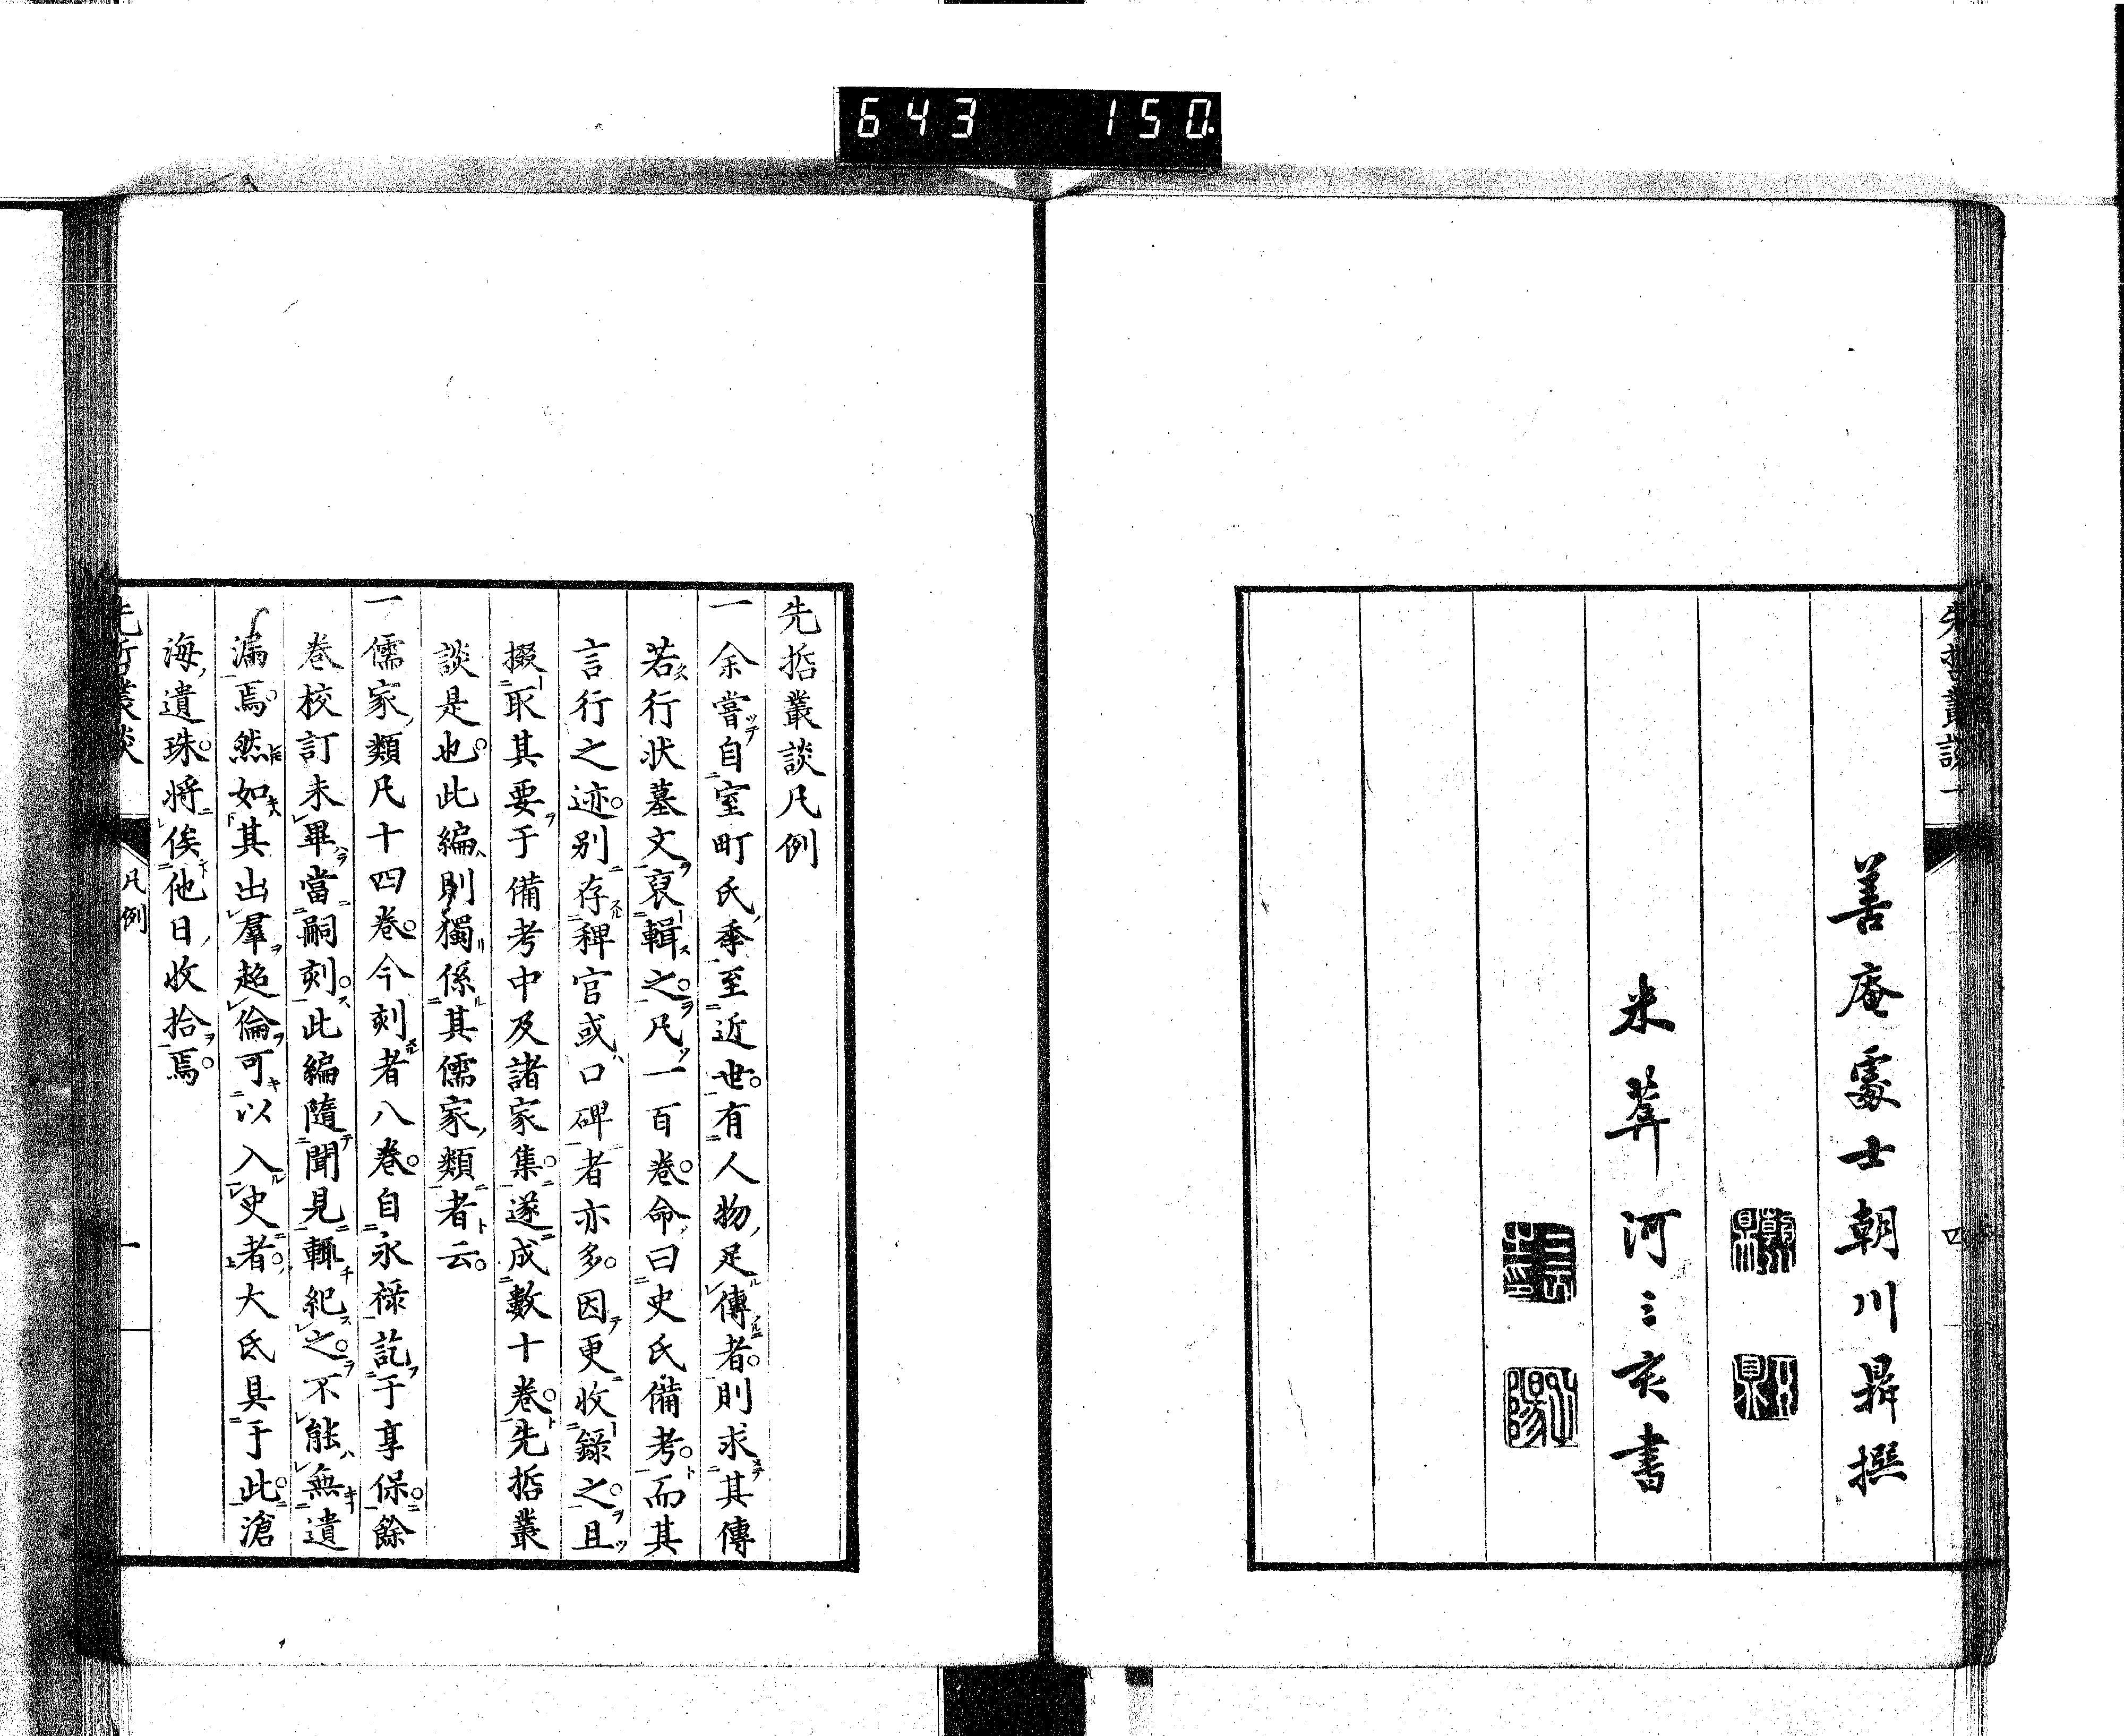 643 150
善庵處士朝川鼎撰
米葊河三亥書
先哲叢談凡例
一余嘗自室町氏季至近世有人物足傳者則求其傳
若行狀墓文裒輯之凡一百卷命曰史氏備考而其
言行之迹別存稗官或口碑者亦多因更收錄之且
掇取其要于備考中及諸家集遂成數十卷先哲叢
談是也此編則獨係其儒家類者云
一儒家類凡十四卷今刻者八卷自永祿訖于享保餘
卷校訂未畢當嗣刻此編隨聞見輒紀之不能無遺
漏焉然如其出羣超倫可以入史者大氐具于此滄
海遺珠將俟他日收拾焉
先哲叢談 凡例 一